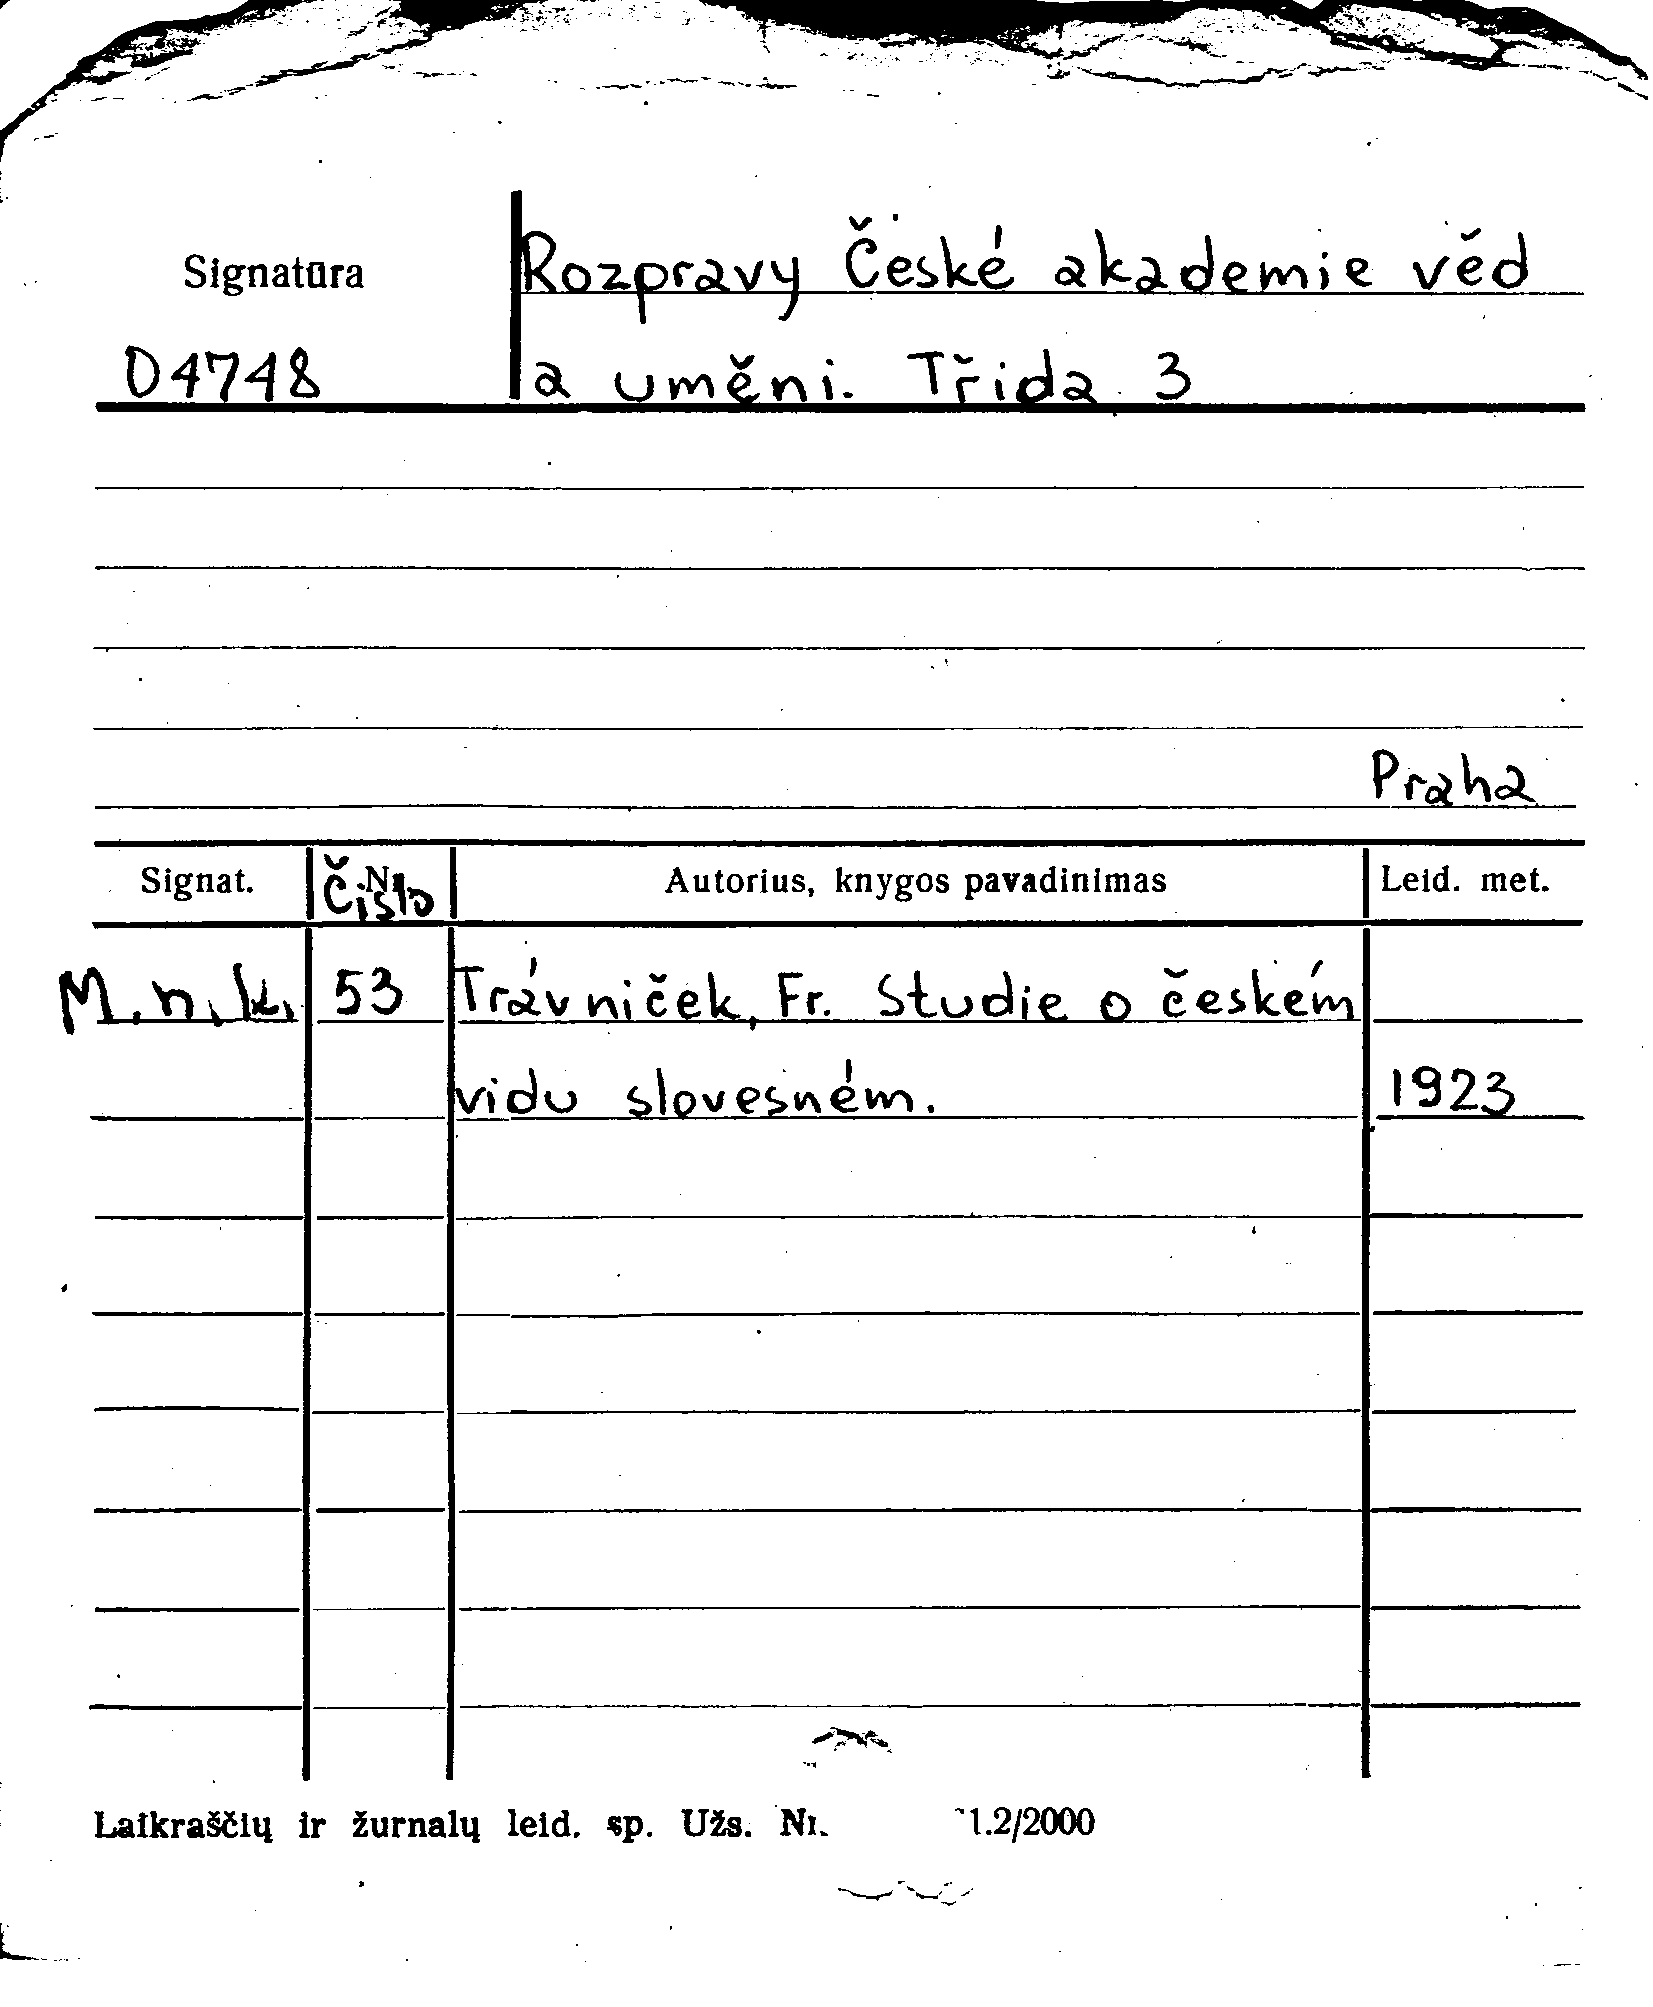 Signatūra
Rozpravy České akademie věd
D4748
a uměni. Třida 3
Praha
Signat. Čislo Autorius, knygos pavadinimas Leid. met.
M.n.k. 53 Trávniček, Fr. Studie o českém
vidu slovesném. 1923
Laikraščių ir žurnalų leid. sp. Užs. Nr. 1.2/2000